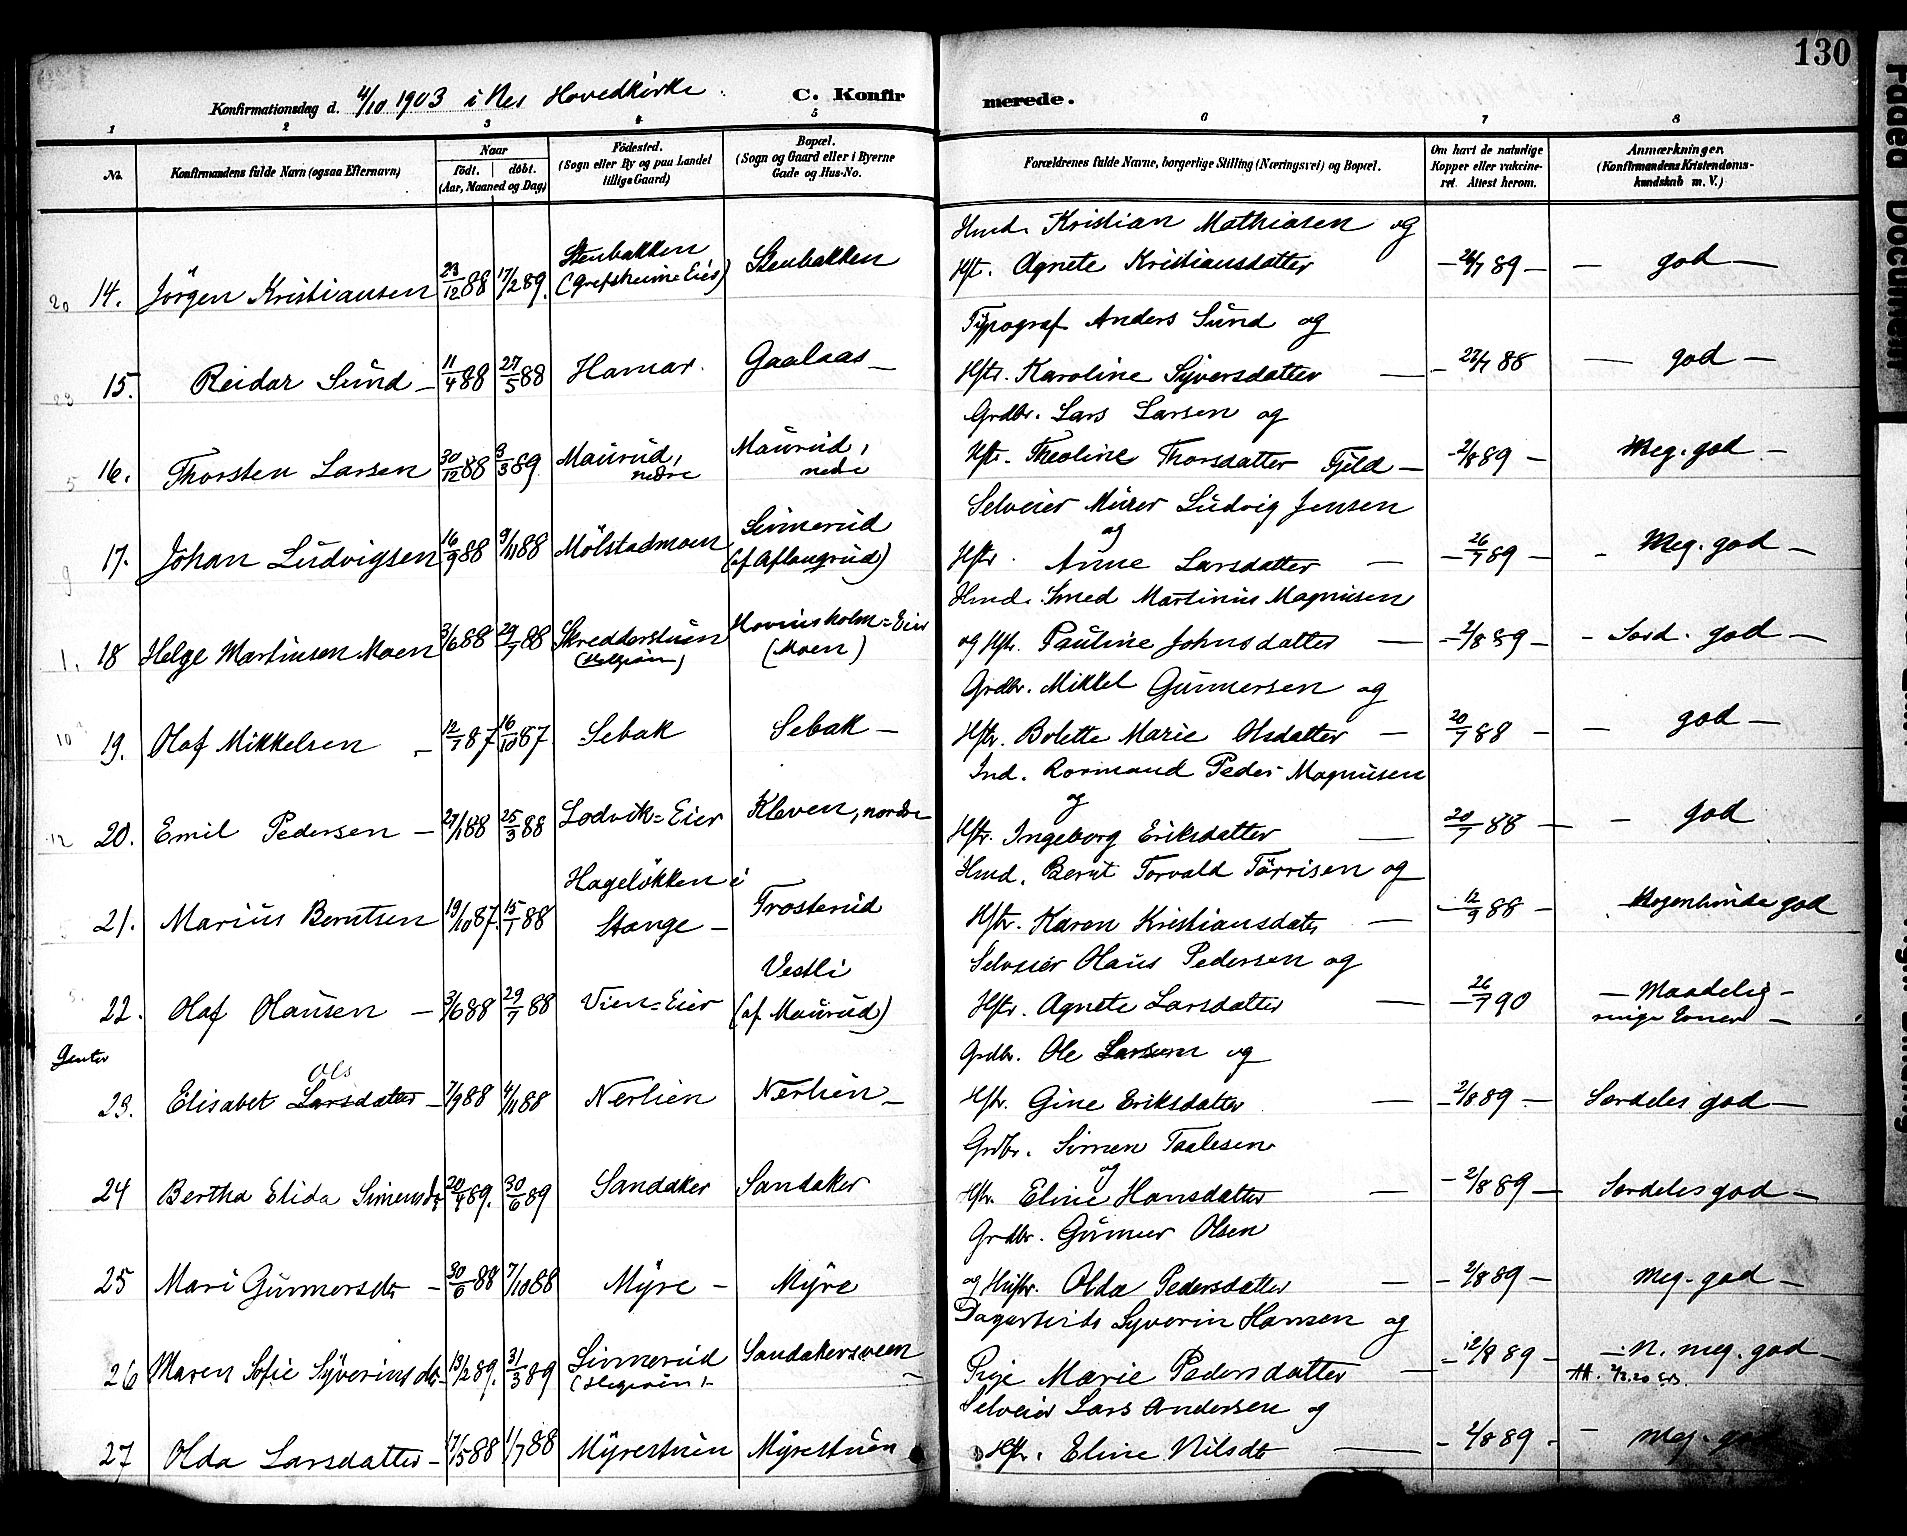 130
Konfirmationsdag d. 4/10 1903 i Nes Hovedkirke. C. Konfirmerede.
1 2 3 4 5 6 7 8
No. Konfirmandens fulde Navn (ogsaa Efternavn) Naar født. døbt. (Aar, Maaned og Dag) Fødested. (Sogn eller By og paa Landet tillige Gaard) Bopæl. (Sogn og Gaard eller i Byerne Gade og Hus-No. Forældrenes fulde Navne, borgerlige Stilling (Næringsvei) og Bopæl. Om havt de naturlige Kopper eller vakcineret. Attest herom. Anmærkninger. (Konfirmandens Kristendomskundskab m. V.)
Hmd. Kristian Mathiasen og
20 14. Jörgen Kristiansen 23/12 88 17/2 89. Stenbakken (Grefsheim=Eier) Stenbakken Hst. Agnete Kristiansdatter – 26/7 89 – – god –
Typograf Anders Sund og
23 15. Reidar Sund – 11/4 88 27/5 88 Hamar. Gaalaas – Hstr. Karoline Syversdatter – – 27/7 88 – god –
Grdbr. Lars Larsen og
5 16. Thorsten Larsen 30/12 88 3/3 89 Maurud, nedre Maurud, nedre Hstr. Theoline Thorsdatter Fjeld – – 2/8 89 – Meg. god –
Selveier Murer Ludvig Jensen
og
9 17. Johan Ludvigsen 16/9 88 9/11 88 Mölstadmoen Simerud (af Aflangrud) Hstr. Anne Larsdatter – – 26/7 89 – – Meg. god –
Hmd. Smed Martinus Magnusen
1. 18 Helge Martinsen Moen 3/6 88 29/7 88 Skredderstuen Hovinsholm=Eier (Moen) og Hstr. Pauline Johnsdatter – – 2/8 89 – – Særd. god –
Grdbr. Mikkel Gunnersen og
10 19. Olaf Mikkelsen – 12/7 87 16/10 87 Sebak Sebak – Hstr. Bolette Marie Olsdatter – 20/7 88 – – god –
Ind. Rormand Peder Magnusen
og
12 20. Emil Pedersen – 27/1 88 25/3 88 Lodvik=Eier Kleven, nordre Hstr. Ingeborg Eriksdatter – 20/7 88 – – god
Hmd. Bernt Torvald Törrisen og
21. Marius Berntsen 19/10 87. 15/1 88 Hagelökken i Stange – Frosterud Hstr. Karen Kristiansdater – – 12/9 88 – Nogenlunde god
Selveier Olaus Pedersen og
22. Olaf Olausen – 3/6 88 29/7 88 Vien=Eier Vestli (af Maurud) Hstr. Agnete Larsdatter – 26/7 90 – Maadelig – ringe Evner –
Jenter
Grdbr. Ole Larsen og
Ols
23. Elisabet Larsdatter – 7/9 88 4/11 88 Nerlien Nerlien – Hstr. Gine Eriksdatter – – 2/8 89 – Særdeles god –
Grdbr. Simen Taalesen
og
24 Bertha Elida Simensdr 20/4 89. 30/6 89 Sandaker Sandaker Hstr. Eline Hansdatter – – 2/8 89 – Særdeles god –
Grdbr. Gunner Olsen
25 Mari Gunnersdr – 30/6 88 7/10 88 Myre – Myre og Hustr. Olda Pedersdatter – – 2/8 89 – Meg. god –
Dagarbeide Syverin Hansen og
26 Maren Sofie Syverinsdtr. 13/2 89. 31/3 89 Simerud Sandakersveen – Pige Marie Pedersdatter – – 12/8 89 – – N. meg. god –
Selveier Lars Andersen og
27 Olda Larsdatter – 17/5 88 1/7 88 Myrestuen Myrestuen Hstr. Eline Nilsdt – – 2/8 89 – – Meg. god